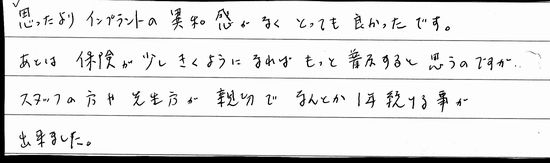 思ったより インプラントの 異和感が なく とっても 良かったです。
あとは 保険が 少し きくように なれば もっと 普及すると 思うのですが…
スタッフの 方や 先生方が 親切で なんとか 1年 続ける 事が
出来ました。